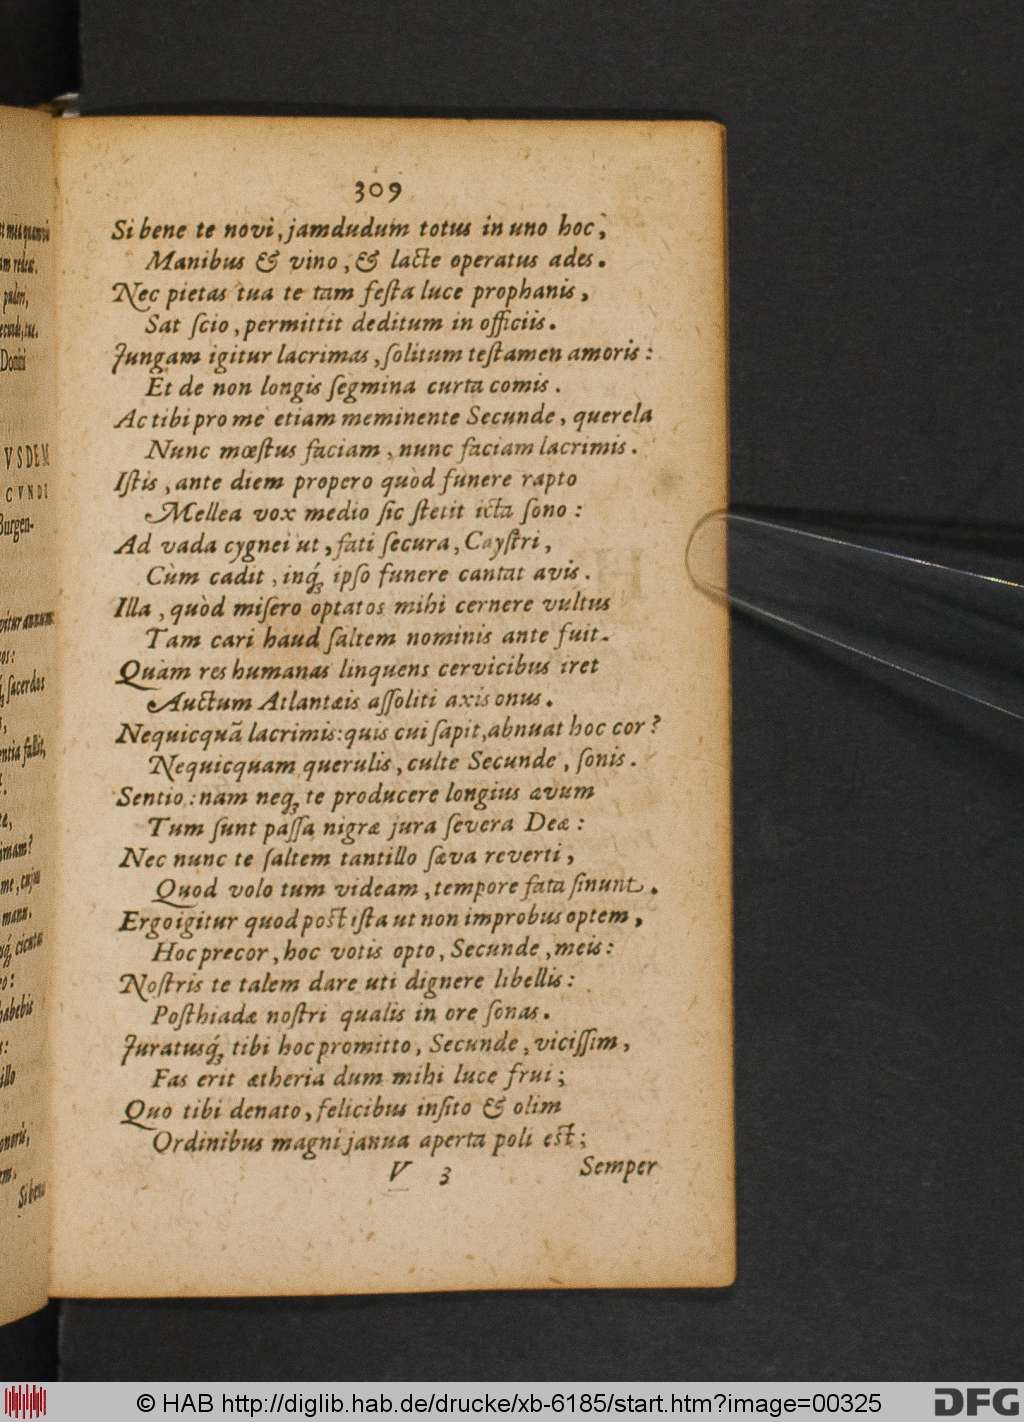 309
Si bene te novi, jamdudum totus in uno hoc,
Manibus & vino, & lacte operatus ades.
Nec pietas tua te tam festa luce prophanis,
Sat scio, permittit deditum in officiis.
Jungam igitur lacrimas, solitum testamen amoris:
Et de non longis segmina curta comis.
Ac tibi pro me etiam meminente Secunde, querela
Nunc mœstus faciam, nunc faciam lacrimis.
Istis, ante diem propero quòd funere rapto
Mellea vox medio sic stetit icta sono:
Ad vada cygnei ut, fati secura, Caystri,
Cùm cadit, inq́ue ipso funere cantat avis.
Illa, quòd misero optatos mihi cernere vultus
Tam cari haud saltem nominis ante fuit.
Quàm res humanas linquens cervicibus iret
Auctum Atlantæis assoliti axis onus.
Nequicquã lacrimis: quis cui sapit, abnuat hoc cor?
Nequicquam querulis, culte Secunde, sonis.
Sentio: nam neq; te producere longius ævum
Tum sunt passa nigræ jura severa Deæ:
Nec nunc te saltem tantillo sæva reverti,
Quod volo tum videam, tempore fata sinunt.
Ergo igitur quod post ista ut non improbus optem,
Hoc precor, hoc votis opto, Secunde, meis:
Nostris te talem dare uti dignere libellis:
Posthiadæ nostri qualis in ore sonas.
Juratusq́; tibi hoc promitto, Secunde, vicissim,
Fas erit ætheria dum mihi luce frui;
Quo tibi denato, felicibus insito & olim
Ordinibus magni janua aperta poli est;
V 3 Semper
© HAB http://diglib.hab.de/drucke/xb-6185/start.htm?image=00325
DFG